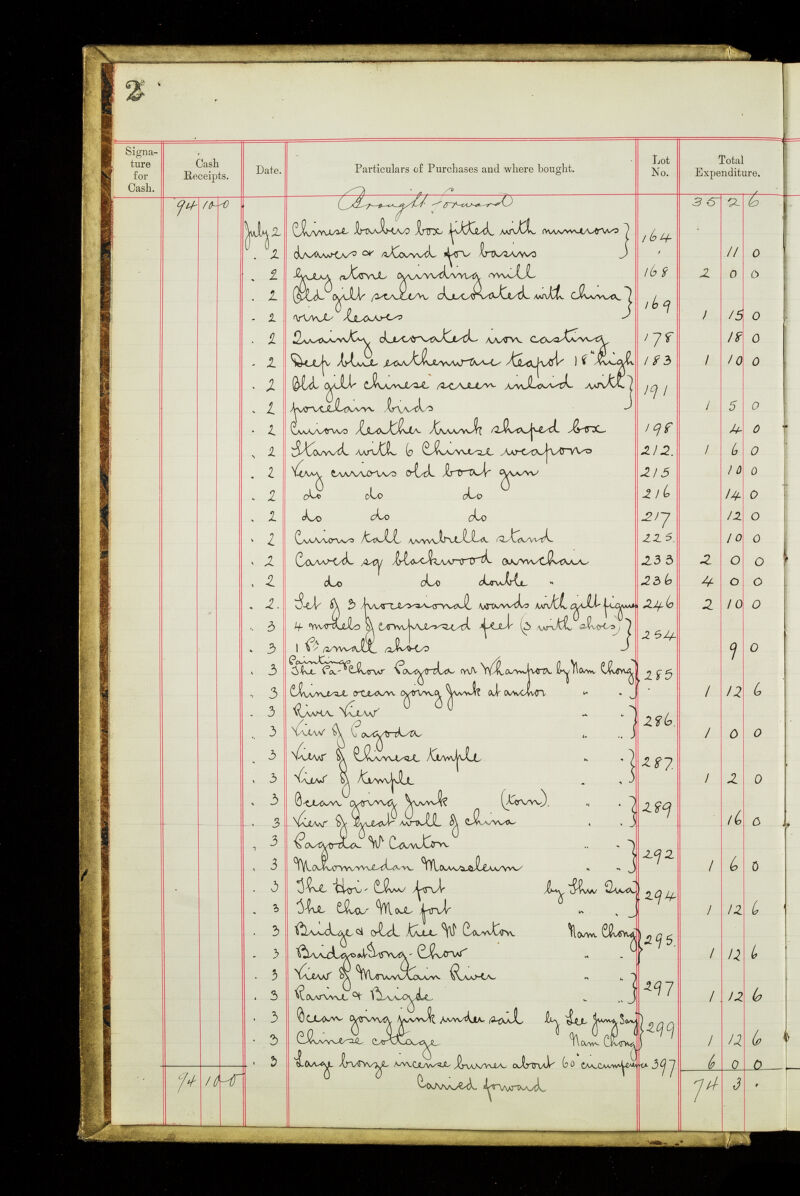 2
Signature for Cash. Cash Receipts. Date. Particulars of Purchases and where bought. Lot No. Total Expenditure.
94 10 0 Brought forward 35 2 6
July 2 Chinese barbers box fitted with numerous } 164
" 2 drawers & stand for basins 11 0
" 2 Grey stone grinding mill 168 2 0 0
" 2 Old gilt screen decorated with china } 169
" 2 vine leaves 1 15 0
" 2 Quaintly decorated iron casting 178 18 0
" 2 Deep blue earthenware teapot 18" high 183 1 10 0
" 2 Old gilt chinese screen inlaid with } 191
" 2 porcelain birds 1 5 0
" 2 Curious leather trunk shaped box 198 4 0
" 2 Stand with 6 Chinese weapons 212. 1 6 0
" 2 Very curious old boat gun 215 10 0
" 2 do do do 216 14 0
" 2 do do do 217 12 0
" 2 Curious tall umbrella stand 225. 10 0
" 2 Carved sq blackwood armchair 233 2 0 0
" 2 do do double " 236 4 0 0
" 2. Set of 3 processional wands with gilt figures 246 2 10 0
" 3 4 models of compressed feet (3 with shoes) } 254
" 3 1 Pr small shoes 9 0
" 3 Paintings The Pa-Chow Pagoda nr Whampoa by Nam Chong } 285
" 3 Chinese ocean going junk at anchor " " 1 12 6
" 3 River View " " } 286.
" 3 View of Pagoda " " 1 0 0
" 3 View of Chinese temple " " } 287.
" 3 View of temple " " 1 2 0
" 3 Ocean going junk (torn). " " } 289
" 3 View of great wall of china " " 16 0
" 3 Pagoda Nr Canton " " } 292
" 3 Mahommedan Mausoleum " " 1 6 0
" 3 The Hoi-Chu fort by Shu Qua } 294
" 3 The Cha-Mae fort " " 1 12 6
" 3 Bridge & old tree Nr Canton Nam Chong } 295.
" 3 Chow " " 1 12 6
" 3 View of Mountain River " " } 297
" 3 Ravine & Bridge " " 1 12 6
" 3 Ocean going junk under sail by Lee Jung Sang } 299
" 3 Chinese cottage Nam Chong 1 12 6
" 3 Large bronze incense burner about 60" circumference 397 6 0 0
94 10 0 Carried forward 74 3 "